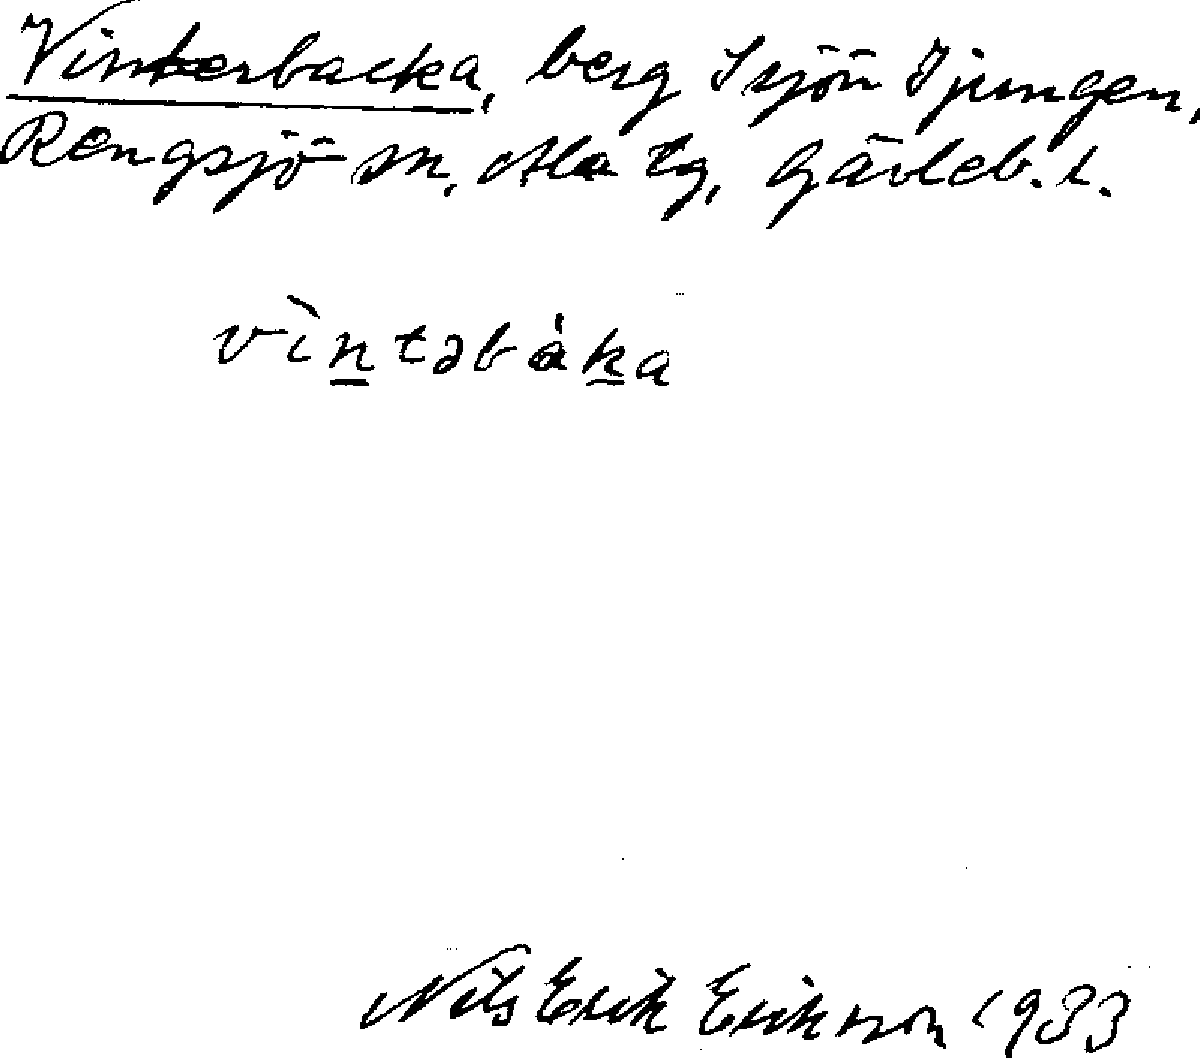 Vinterbacka, berg I sjön Tjungen,
Rengsjö sn, Ala tg, Gävleb. l.
vìntəbàka
Nils Erik Erikson 1933